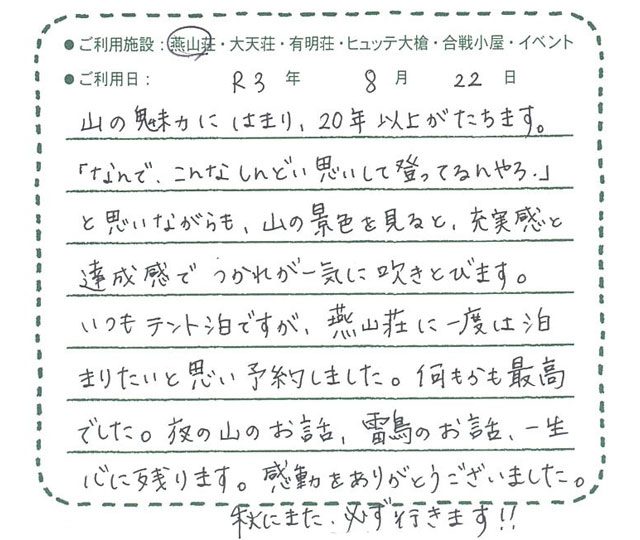 ●ご利用施設：燕山荘・大天荘・有明荘・ヒュッテ大槍・合戦小屋・イベント
●ご利用日： R3 年 8 月 22 日
山の魅力にはまり、20年以上がたちます。
「なんで、こんなしんどい思いして登ってるんやろ.」
と思いながらも、山の景色を見ると、充実感と
達成感でつかれが一気に吹きとびます。
いつもテント泊ですが、燕山荘に一度は泊
まりたいと思い予約しました。何もかも最高
でした。夜の山のお話、雷鳥のお話、一生
心に残ります。感動をありがとうございました。
秋にまた、必ず行きます!!